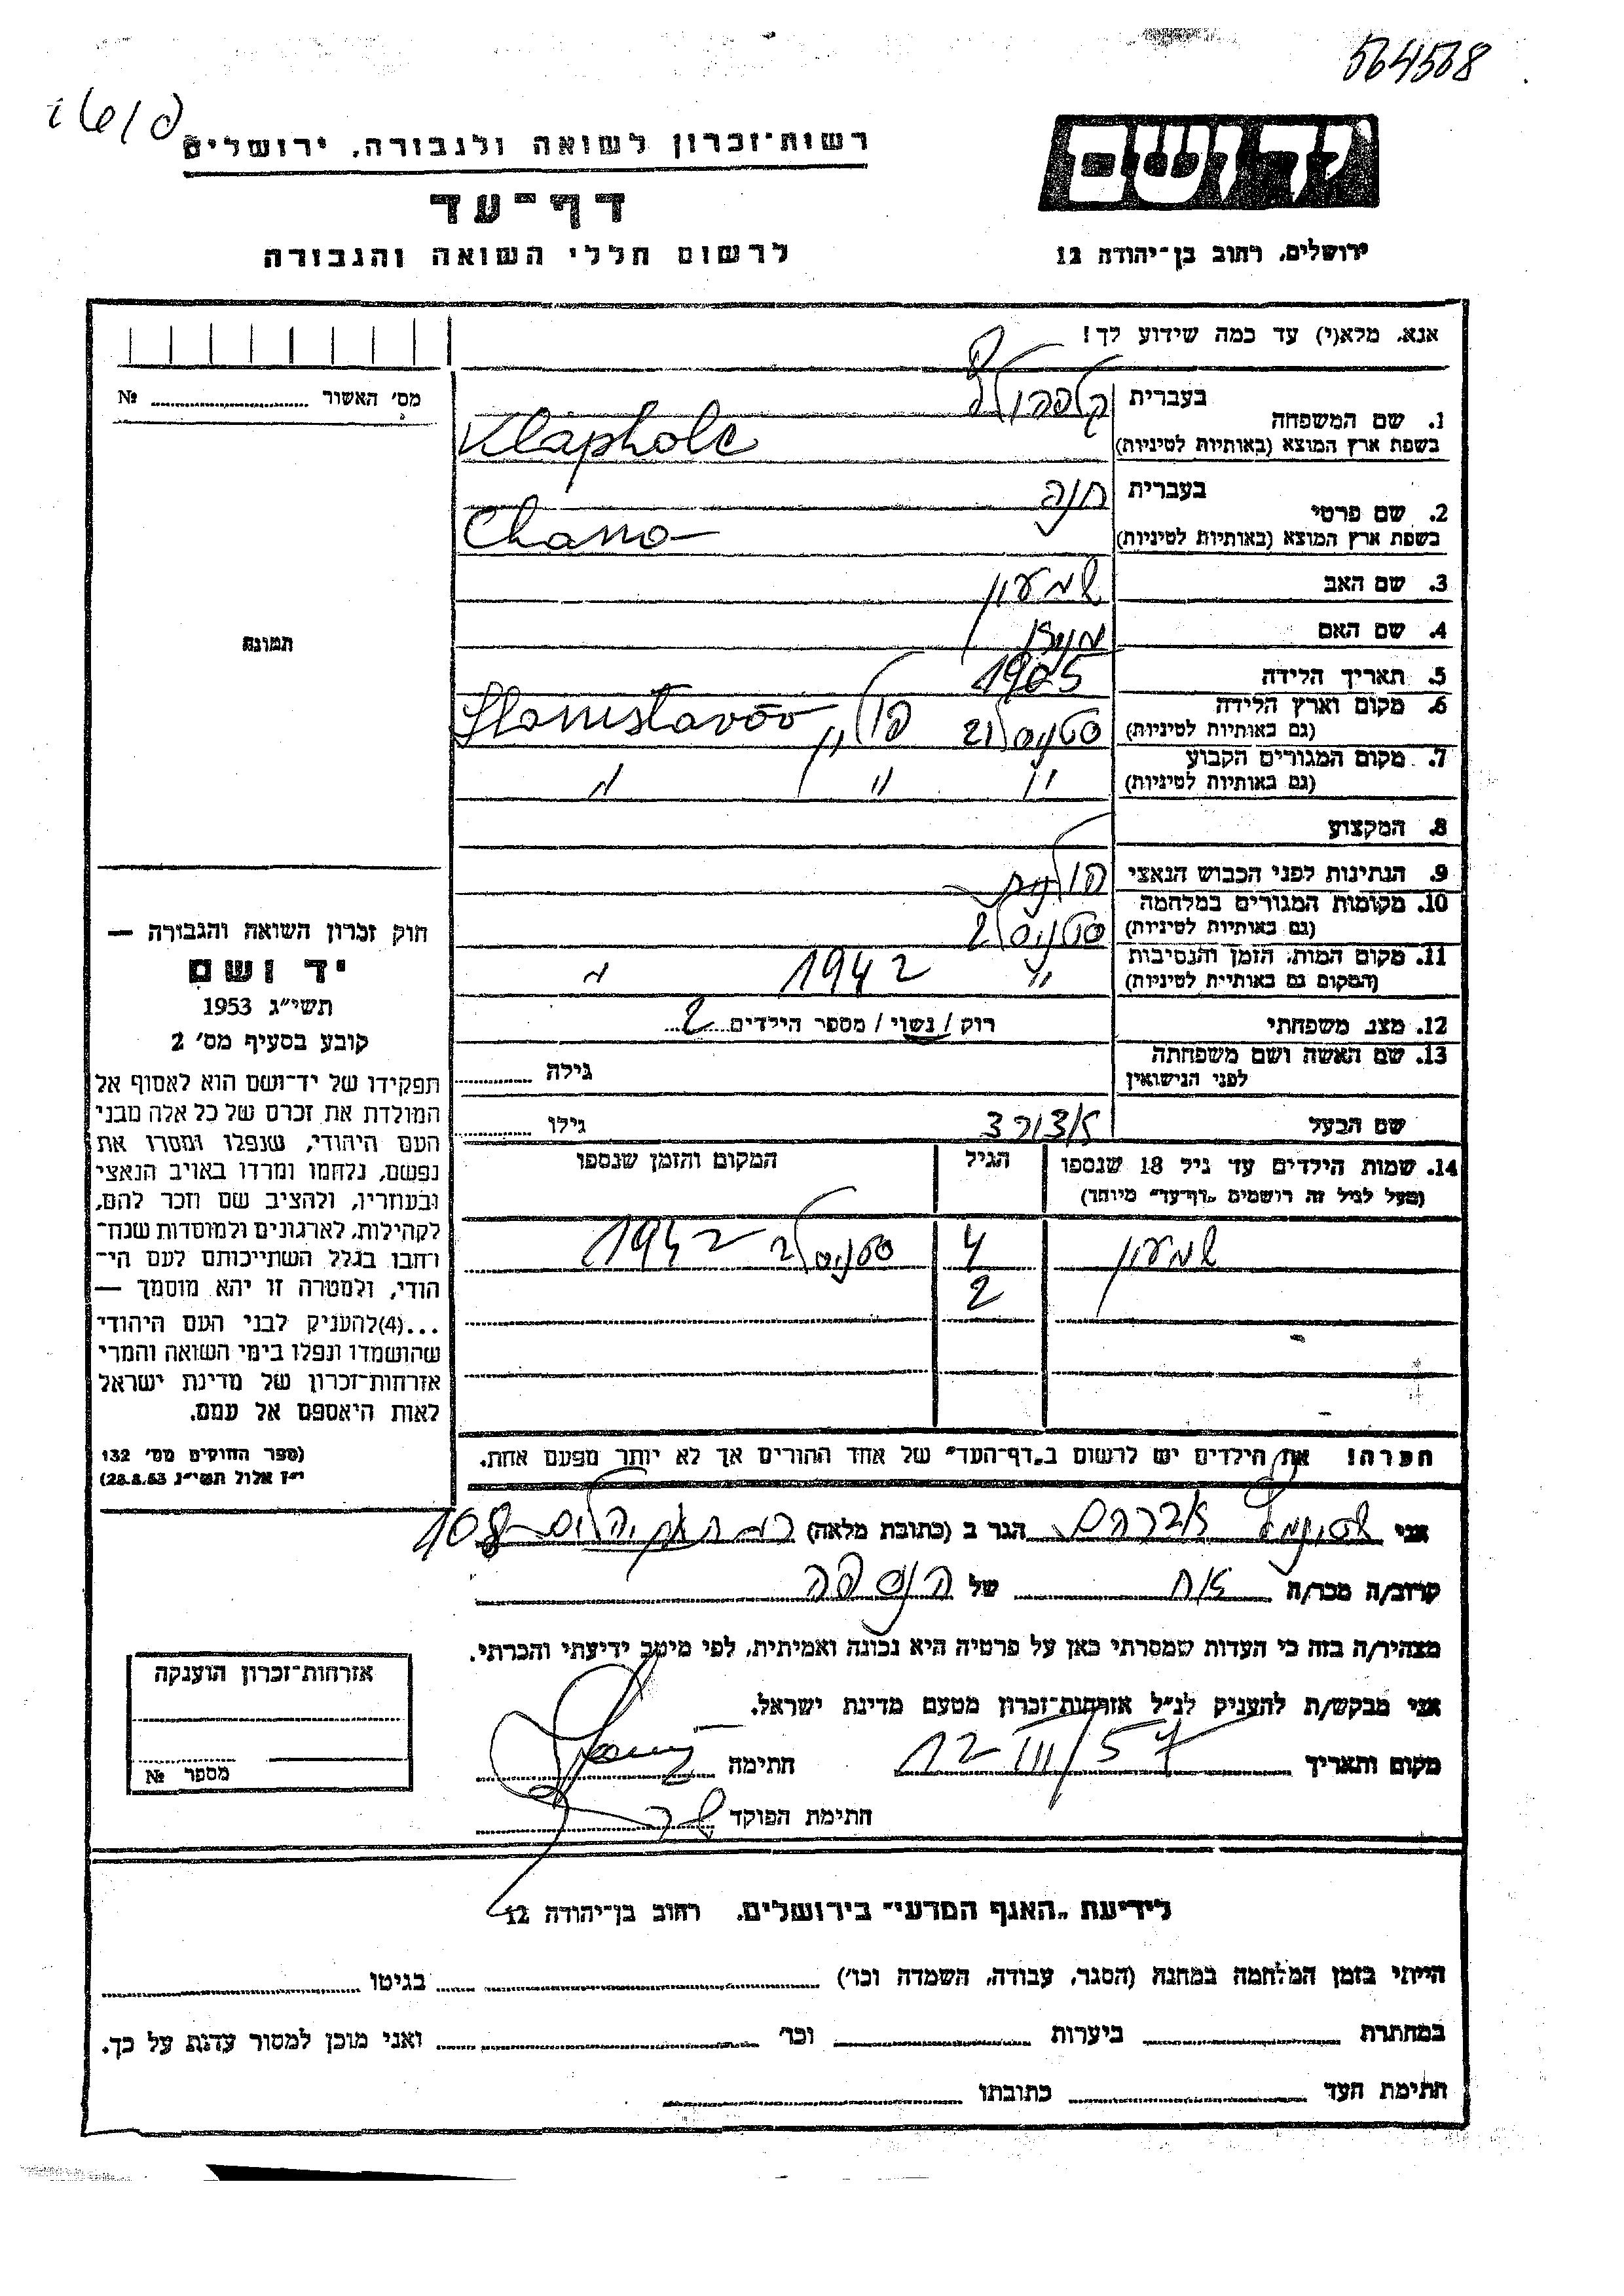 564568
רשות־זכרון לשואה ולגבורה, ירושלים
יד ושם
דף־עד
לרשום חללי השואה והגבורה
ירושלים, רחוב בן־יהודה 12
אנא, מלא(י) עד כמה שידוע לך!
מס' האשור № 
1. שם המשפחה
בעברית
בשפת ארץ המוצא (באותיות לטיניות)
Klapholc
2. שם פרטי
בעברית חנה
בשפת ארץ המוצא (באותיות לטיניות)
Chana
3. שם האב שמעון
4. שם האם
5. תאריך הלידה 1905
6. מקום וארץ הלידה
(גם באותיות לטיניות) סטניסלוב פולין Stanisławów
7. מקום המגורים הקבוע
(גם באותיות לטיניות) " " "
8. המקצוע
9. הנתינות לפני הכבוש הנאצי פולנית
10. מקומות המגורים במלחמה
(גם באותיות לטיניות) סטניסלב
11. מקום המות, הזמן והנסיבות
(המקום גם באותיות לטיניות) " 1942 "
12. מצב משפחתי רוק / נשוי / מספר הילדים 2
13. שם האשה ושם משפחתה
לפני הנישואין
גילה
שם הבעל
גילו
14. שמות הילדים עד גיל 18 שנספו
(מעל לגיל זה רושמים "דף־עד" מיוחד)
הגיל
המקום והזמן שנספו
שמעון 4 סטניסלב 1942
2
הערה! את הילדים יש לרשום ב"דף־העד" של אחד ההורים אך לא יותר מפעם אחת.
תמונה
חוק זכרון השואה והגבורה —
יד ושם
תשי"ג 1953
קובע בסעיף מס' 2
תפקידו של יד־ושם הוא לאסוף אל
המולדת את זכרם של כל אלה מבני
העם היהודי, שנפלו ומסרו את
נפשם, נלחמו ומרדו באויב הנאצי
ובעוזריו, ולהציב שם וזכר להם,
לקהילות, לארגונים ולמוסדות שנח־
רחבו בגלל השתייכותם לעם הי־
הודי, ולמטרה זו יהא מוסמך —
...(4) להעניק לבני העם היהודי
שהושמדו ונפלו בימי השואה והמרי
אזרחות־זכרון של מדינת ישראל
לאות היאספם אל עמם.
(ספר החוקים מס' 132
י"ז אלול תשי"ג 28.8.53)
אני אברהם הגר ב (כתובת מלאה) 108
קרוב/ה מכר/ה אח של הנספה
מצהיר/ה בזה כי העדות שמסרתי כאן על פרטיה היא נכונה ואמיתית, לפי מיטב ידיעתי והכרתי.
אני מבקש/ת להעניק לנ"ל אזרחות־זכרון מטעם מדינת ישראל.
מקום ותאריך 12 III/57 חתימה
חתימת הפוקד
אזרחות־זכרון הוענקה
מספר №
לידיעת "האגף המדעי" בירושלים, רחוב בן־יהודה 12
הייתי בזמן המלחמה במחנה (הסגר, עבודה, השמדה וכו') בגיטו
במחתרת ביערות וכו' ואני מוכן למסור עדות על כך.
חתימת העד כתובתו